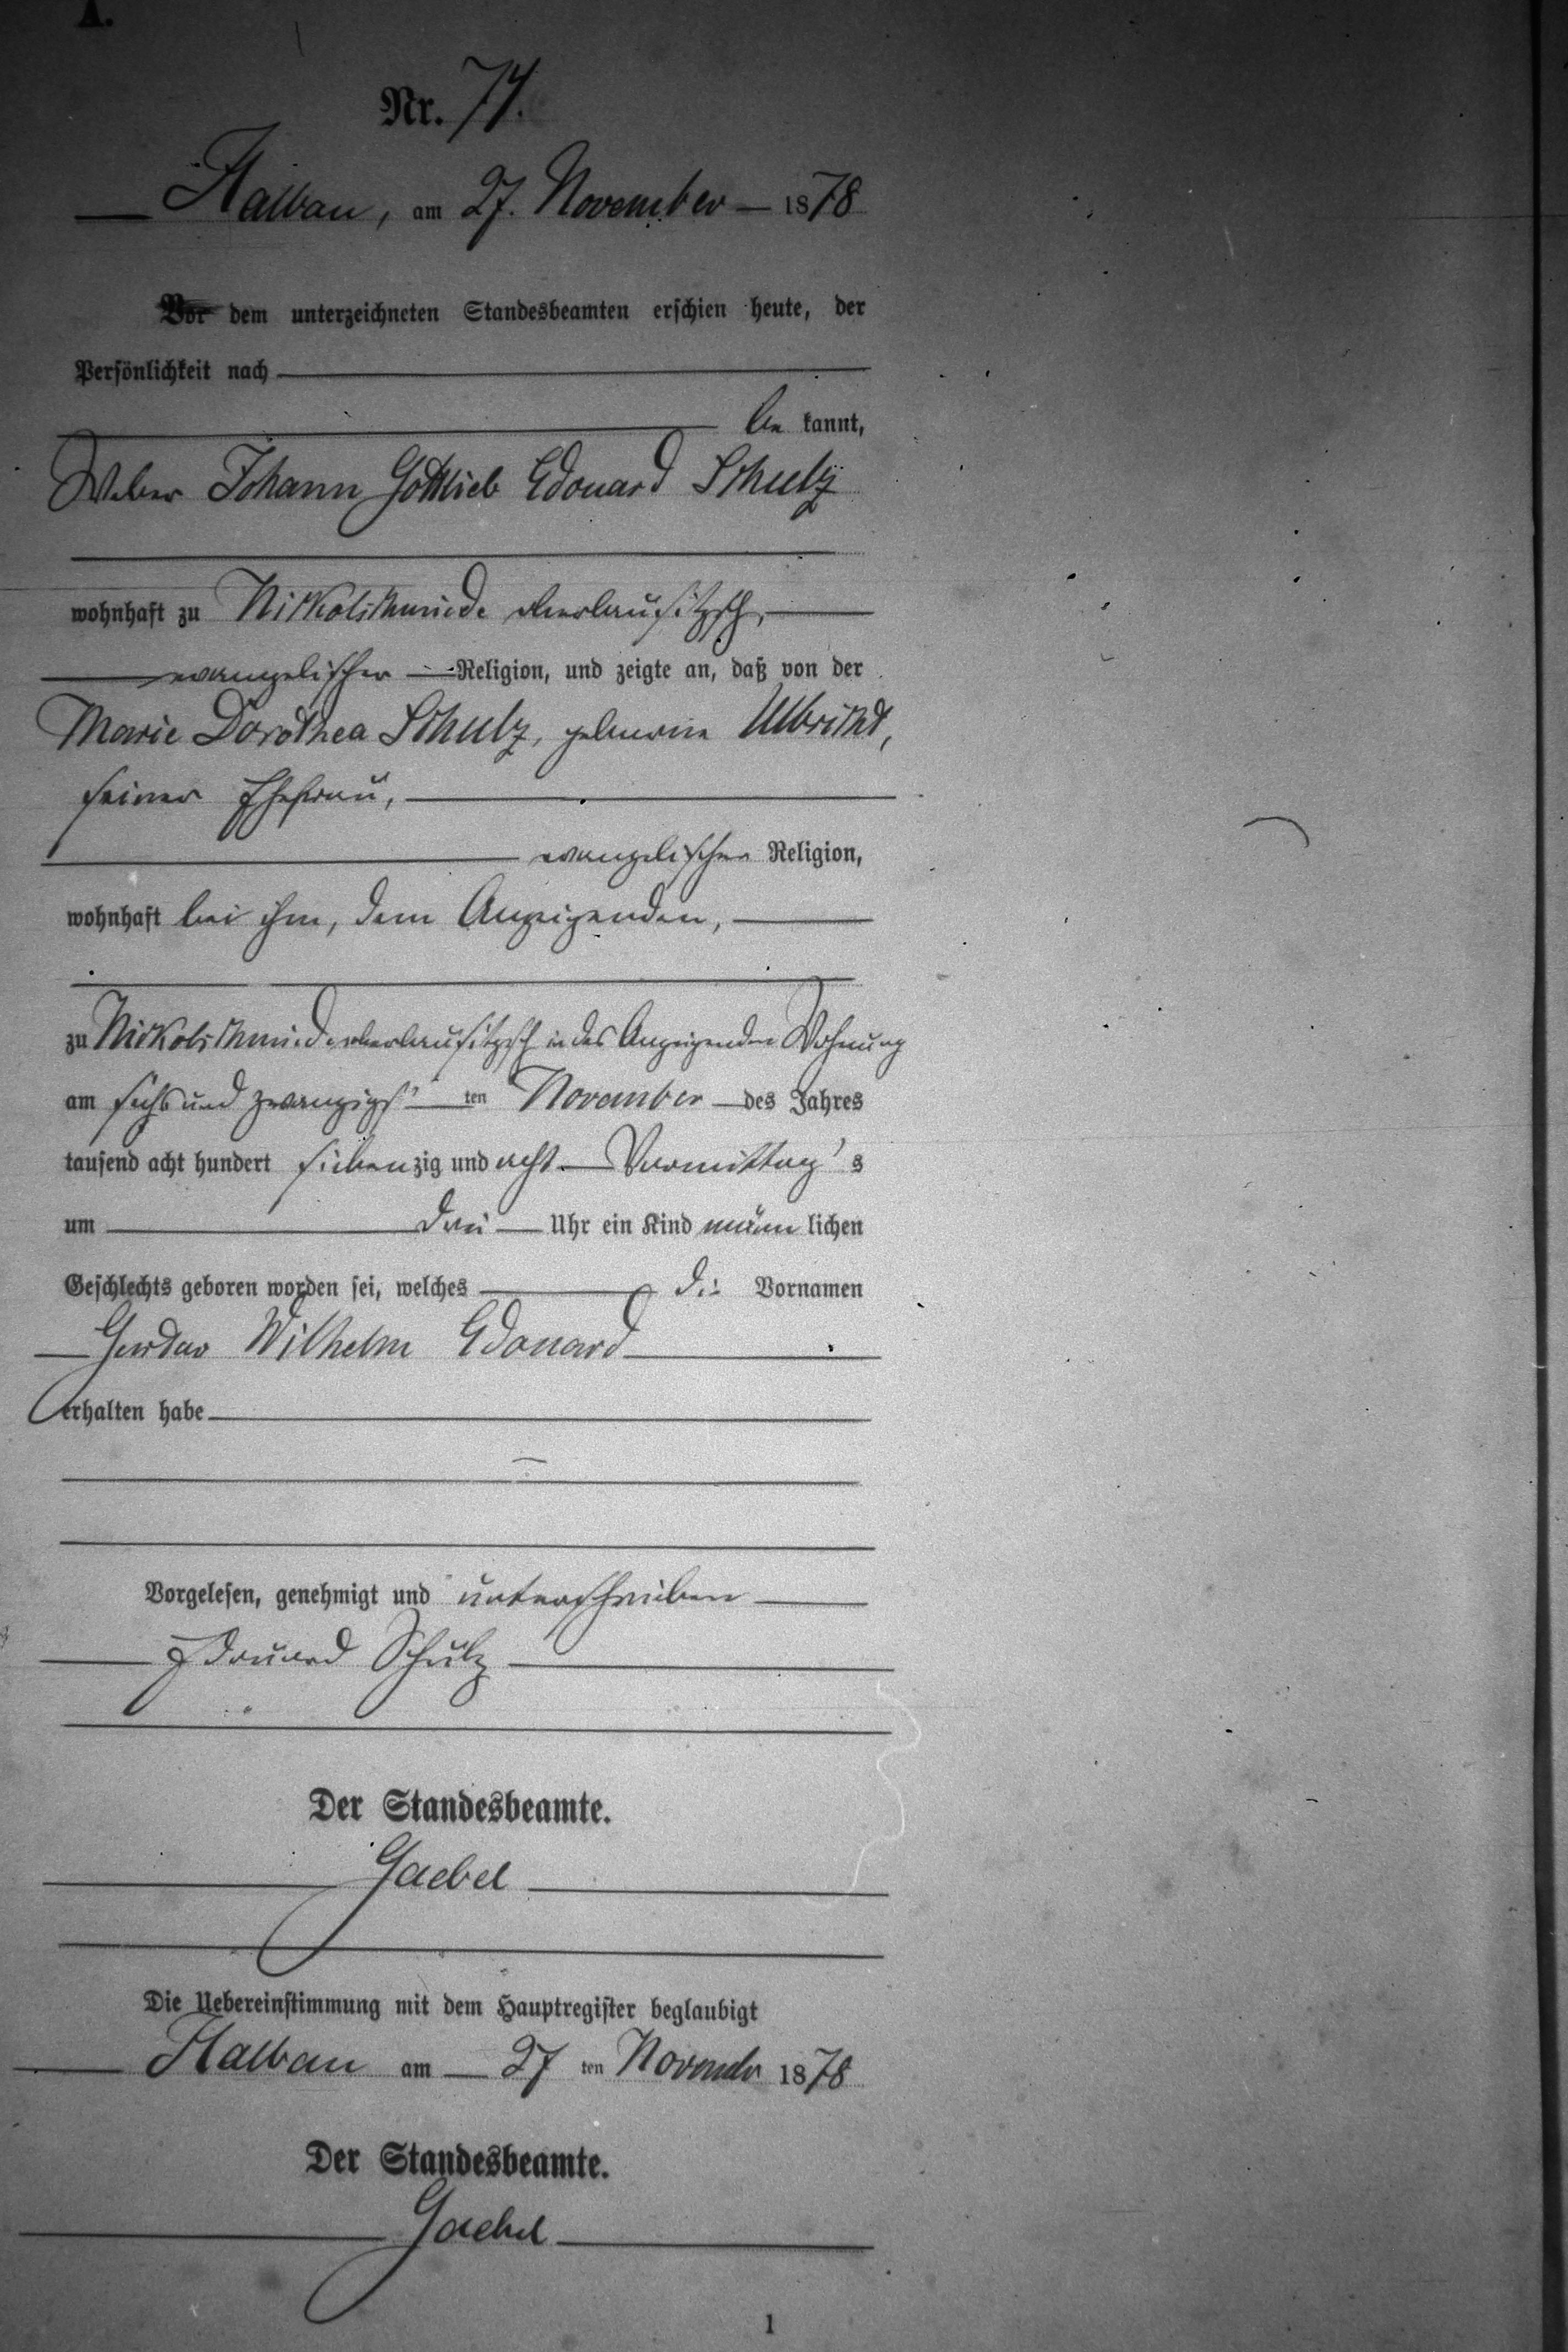 A.
Nr. 74.
Halbau, am 27. November 1878
Vor dem unterzeichneten Standesbeamten erschien heute, der
Persönlichkeit nach
be kannt,
Weber Johann Gottlieb Edouard Schulz
wohnhaft zu Nikolschmiede oberlausitzsch,
evangelischer Religion, und zeigte an, daß von der
Marie Dorothea Schulz, geborene Ulbricht,
seiner Ehefrau,
evangelischer Religion,
wohnhaft bei ihm, dem Anzeigenden,
zu Nickolschmiede oberlausitzsch in des Anzeigenden Wohnung
am sechs und zwanzigs ten November des Jahres
tausend acht hundert siebenzig und acht Vormittag s
um drei Uhr ein Kind männ lichen
Geschlechts geboren worden sei, welches die Vornamen
Gustav Wilhelm Edouard
erhalten habe
Vorgelesen, genehmigt und unterschrieben
Edouard Schulz
Der Standesbeamte.
Gaebel
Die Uebereinstimmung mit dem Hauptregister beglaubigt
Halbau am 27 ten November 1878
Der Standesbeamte.
Gaebel
1